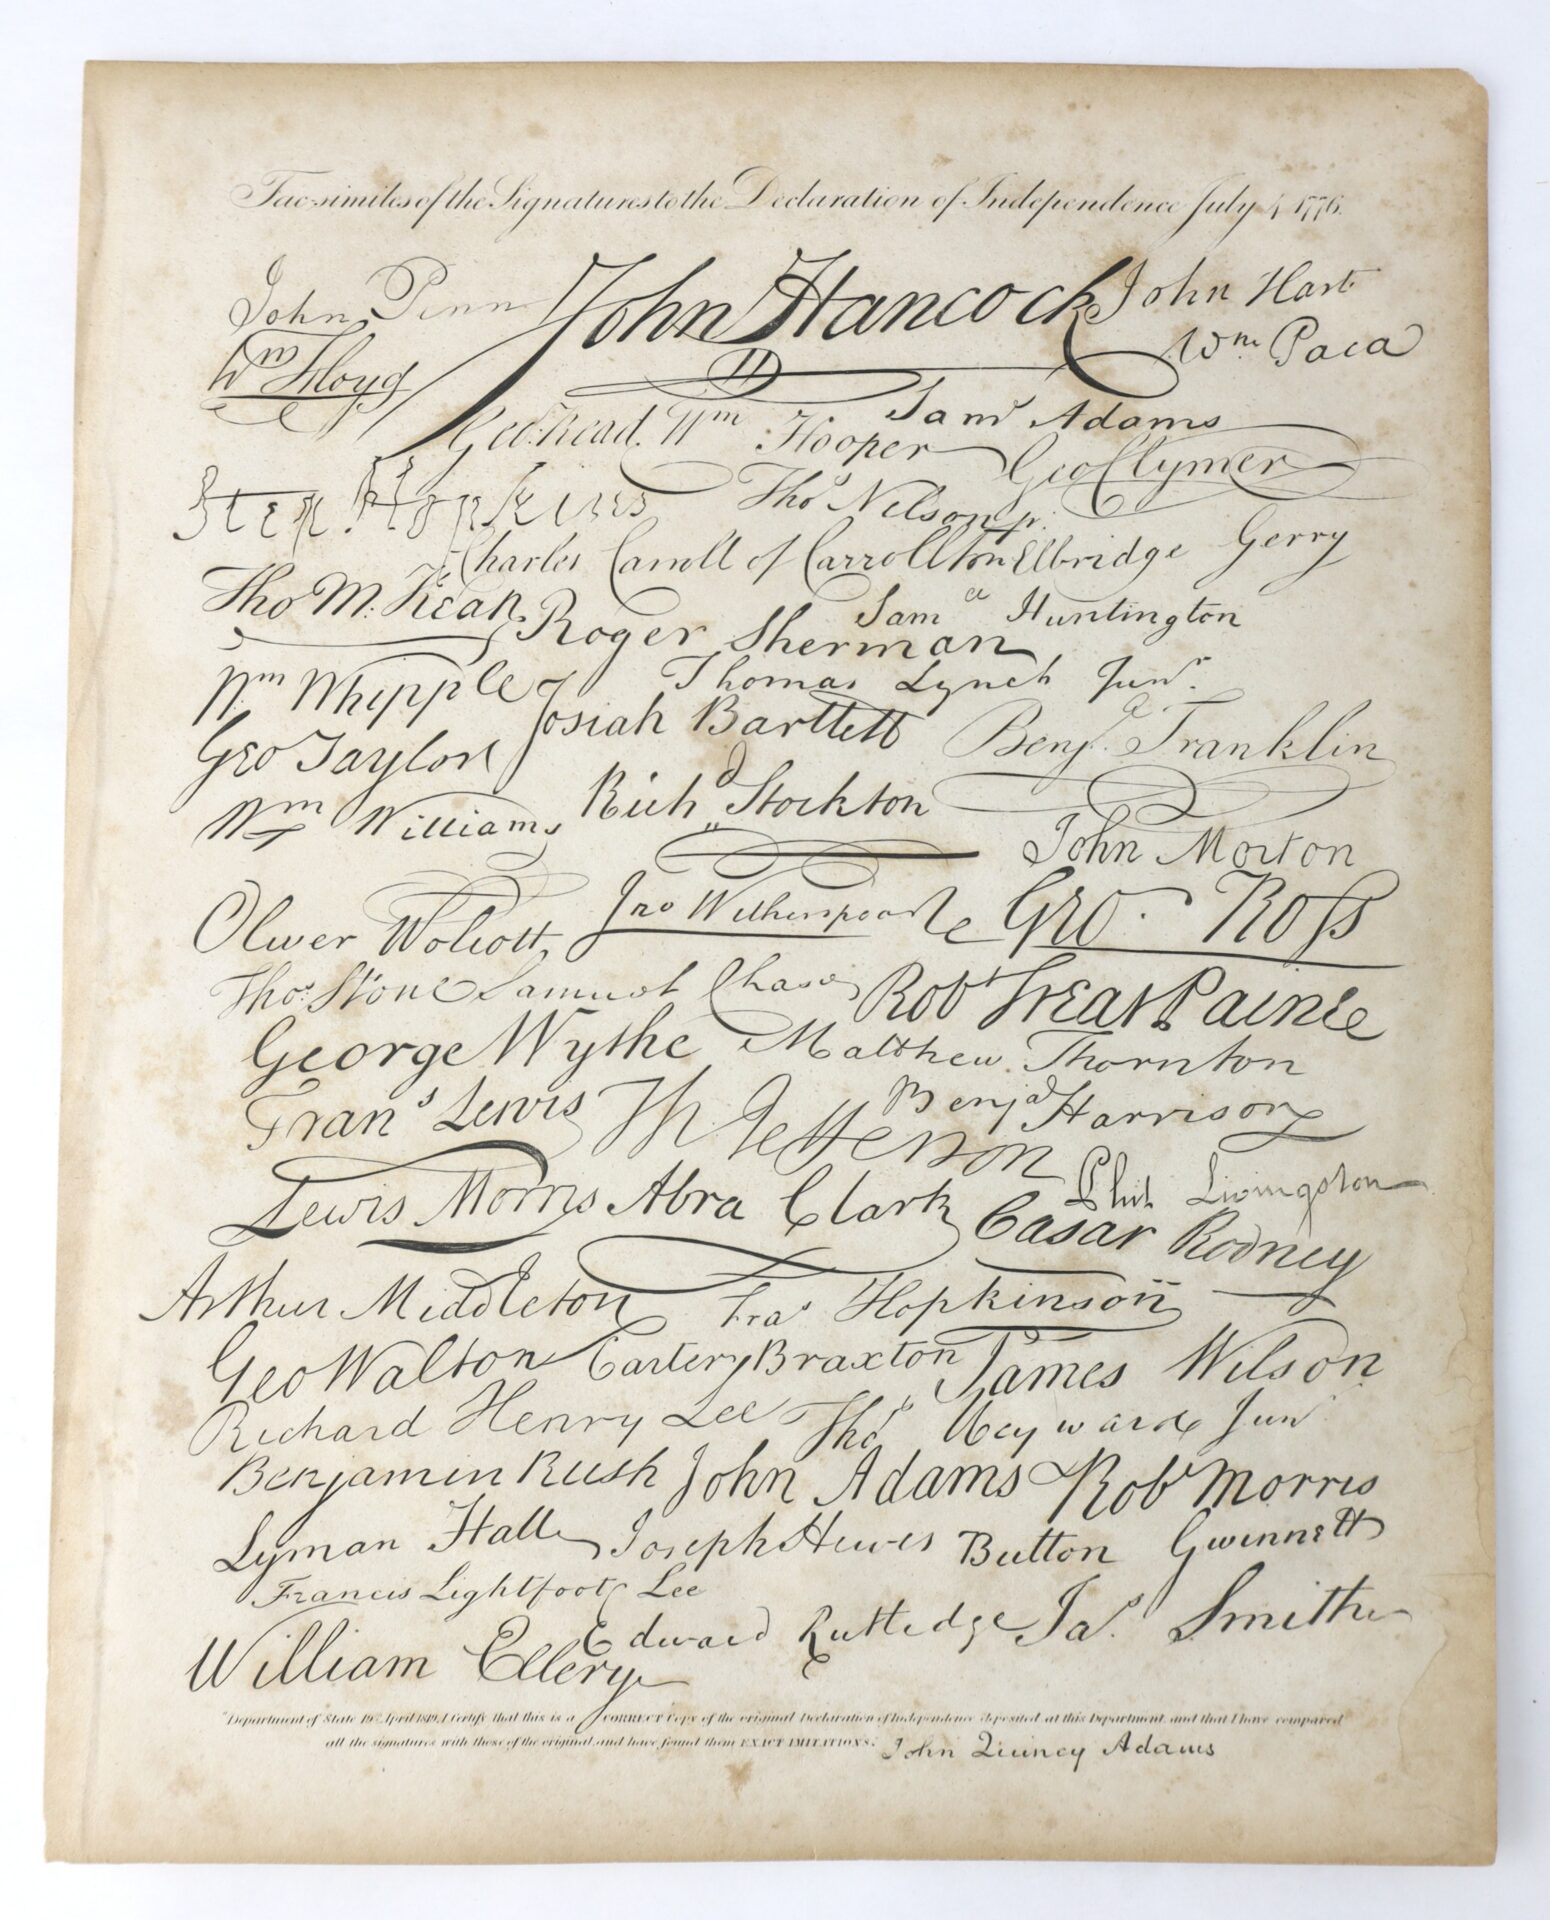 Fac-similes of the Signatures to the Declaration of Independence July 4 1776.
John Penn John Hancock John Hart
Wm Floyd Wm Paca
Geo. Read. Wm Hooper Saml Adams
Geo Clymer
Step. Hopkins Thos Nelson jr.
Charles Carroll of Carrollton Elbridge Gerry
Tho M. Kean Roger Sherman Saml Huntington
Wm Whipple Thomas Lynch Junr.
Josiah Bartlett Benja. Franklin
Geo Taylor
Wm Williams Richd Stockton
John Morton
Oliver Wolcott Jno Witherspoon Geo. Ross
Thos. Stone Samuel Chase Robt Treat Paine
George Wythe Matthew Thornton
Frans Lewis Th Jefferson Benja Harrison
Lewis Morris Abra Clark Phil. Livingston
Casar Rodney
Arthur Middleton Fras Hopkinson
Geo Walton Carter Braxton James Wilson
Richard Henry Lee Thos Heyward Junr
Benjamin Rush John Adams Robt Morris
Lyman Hall Joseph Hewes Button Gwinnett
Francis Lightfoot Lee
William Ellery Edward Rutledge Jas. Smith
"Department of State 19th April 1819, I Certify that this is a CORRECT Copy of the original Declaration of Independence deposited at this Department, and that I have compared
all the signatures with those of the original, and have found them EXACT IMITATIONS." John Quincy Adams